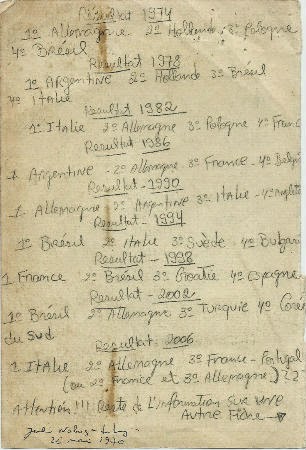 Résultat 1974
1º Allemagne 2º Hollande 3º Pologne
4º Brésil
Resultat 1978
1º Argentine 2º Hollande 3º Brésil
4º Italie
Resultat 1982
1º Italie 2º Allemagne 3º Pologne 4º France
Resultat 1986
1 Argentine - 2º Allemagne 3º France - 4º Belgi
Resultat - 1990
1 Allemagne 2º Argentine 3º Italie - 4º Anglete
Resultat - 1994
1º Brésil 2º Italie 3º Suède 4º Bulgari
Resultat - 1998
1 France 2º Brésil 3º Croatie 4º Espagne
Resultat - 2002
1º Brésil 2º Allemagne 3º Turquie 4º Coree
du Sud
Resultat - 2006
1 Italie 2º Allemagne 3º France - Portugal
(ou 2º France et 3º Allemagne) ??
Attention !!! Reste de L'information sur une
Autre Fiche
25 mai 1970